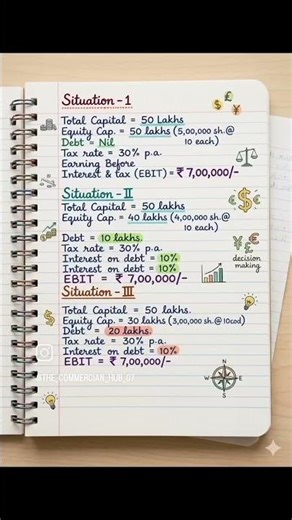 Situation - 1
Total Capital = 50 Lakhs
Equity Cap. = 50 lakhs (5,00,000 sh.@
10 each)
Debt = Nil
Tax rate = 30% p.a.
Earning Before
Interest & tax (EBIT) = ₹ 7,00,000/-
Situation - II
Total Capital = 50 lakhs
Equity Cap. = 40 lakhs (4,00,000 sh.@
10 each)
Debt = 10 lakhs.
Tax rate = 30% p.a.
Interest on debt = 10%
Interest on debt = 10%
EBIT = ₹ 7,00,000/-
decision
making
Situation - III
Total Capital = 50 lakhs.
Equity Cap. = 30 lakhs (3,00,000 sh.@ 10cod)
Debt = 20 lakhs.
Tax rate = 30% p.a.
Interest on debt = 10%
EBIT = ₹ 7,00,000/-
@THE_COMMERCIAN_HUB_07
N
W
E
S